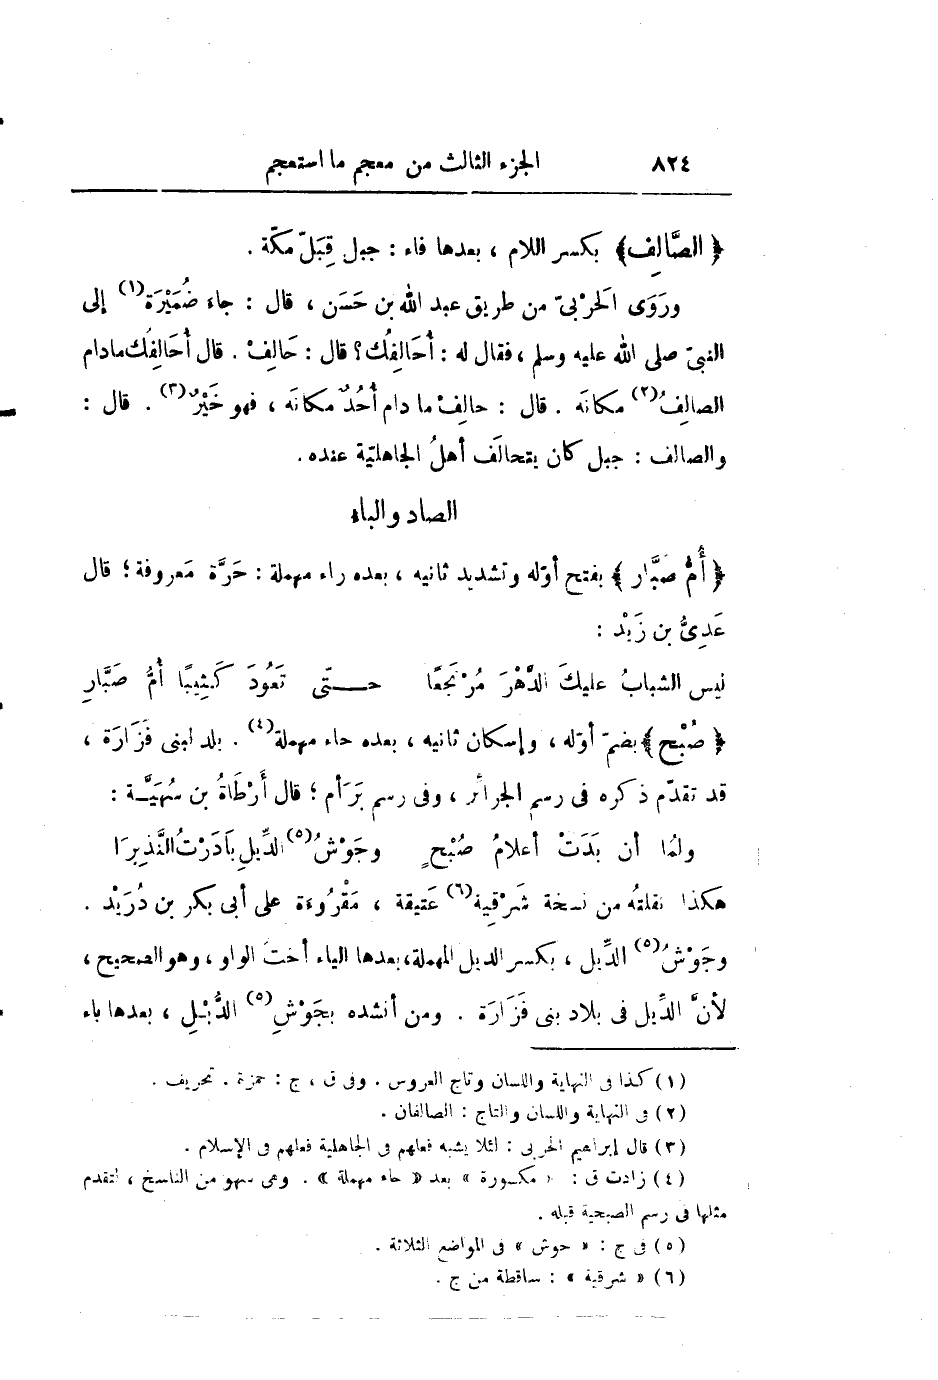 ٨٢٤ الجزء الثالث من معجم ما استعجم
﴿ الصَّالِف﴾ بكسر اللام ، بعدها فاء : جبل قِبَلَ مكّة .
ورَوَى الَحرْبىّ من طريق عبد الله بن حَسَن ، قال : جاء ضُمَيْرَة(١) إلى
النبىّ صلى الله عليه وسلم ، فقال له : أُحَالِفُك؟ قال : حَالِفْ . قال أُحَالِفُك مادام
الصالِفُ(٢) مكانَه . قال : حالِفْ ما دام أُحُدٌ مكانَه ، فهو خَيْرٌ(٣) . قال :
والصالف : جبل كان يتحالَف أهلُ الجاهليّة عنده .
الصاد والباء
﴿ أُمُّ صَبَّار ﴾ بفتح أوّله وتشديد ثانيه ، بعده راء مهملة : حَرَّة مَعروفة ؛ قال
عَدِىُّ بن زَيْد :
ليس الشبابُ عليكَ الدَّهْرَ مُرْتَجَعًا حـــتّى تَعُودَ كَثِيبًا أُمُّ صَبَّارِ
﴿ صُبْح ﴾ بضمّ أوّله ، وإسكان ثانيه ، بعده حاء مهملة(٤) . بلد لبنى فَزَارَة ،
قد تقدّم ذكره فى رسم الجرائر ، وفى رسم بَرَأم ؛ قال أَرْطَاةُ بن سُهَيَّـة :
ولمّا أن بَدَتْ أعلامُ صُبْحٍ وجَوْشُ(٥) الدِّيلِ بَادَرْتُ النَّذِيرَا
هكذا نقلتُه من نسخة شَرْقية(٦) عَتيقة ، مَقْرُوءَة على أبى بكر بن دُرَيْد .
وجَوْشُ(٥) الدِّيل ، بكسر الديل المهملة، بعدها الياء أختَ الواو ، وهو الصحيح ،
لأنَّ الدِّيل فى بلاد بنى فَزَارَة . ومن أنشده بجَوْشِ(٥) الدُّبْلِ ، بعدها باء
(١) كذا فى النهاية واللسان وتاج العروس . وفى ق ، ج : حمزة . تحريف .
(٢) فى النهاية واللسان والتاج : الصالفان .
(٣) قال إبراهيم الحربى : لئلا يشبه فعلهم فى الجاهلية فعلهم فى الإسلام .
(٤) زادت ق : « مكسورة » بعد « حاء مهملة » . وهى سهو من الناسخ ، لتقدم
مثلها فى رسم الصبحية قبله .
(٥) فى ج : « حوش » فى المواضع الثلاثة .
(٦) « شرقية » : ساقطة من ج .